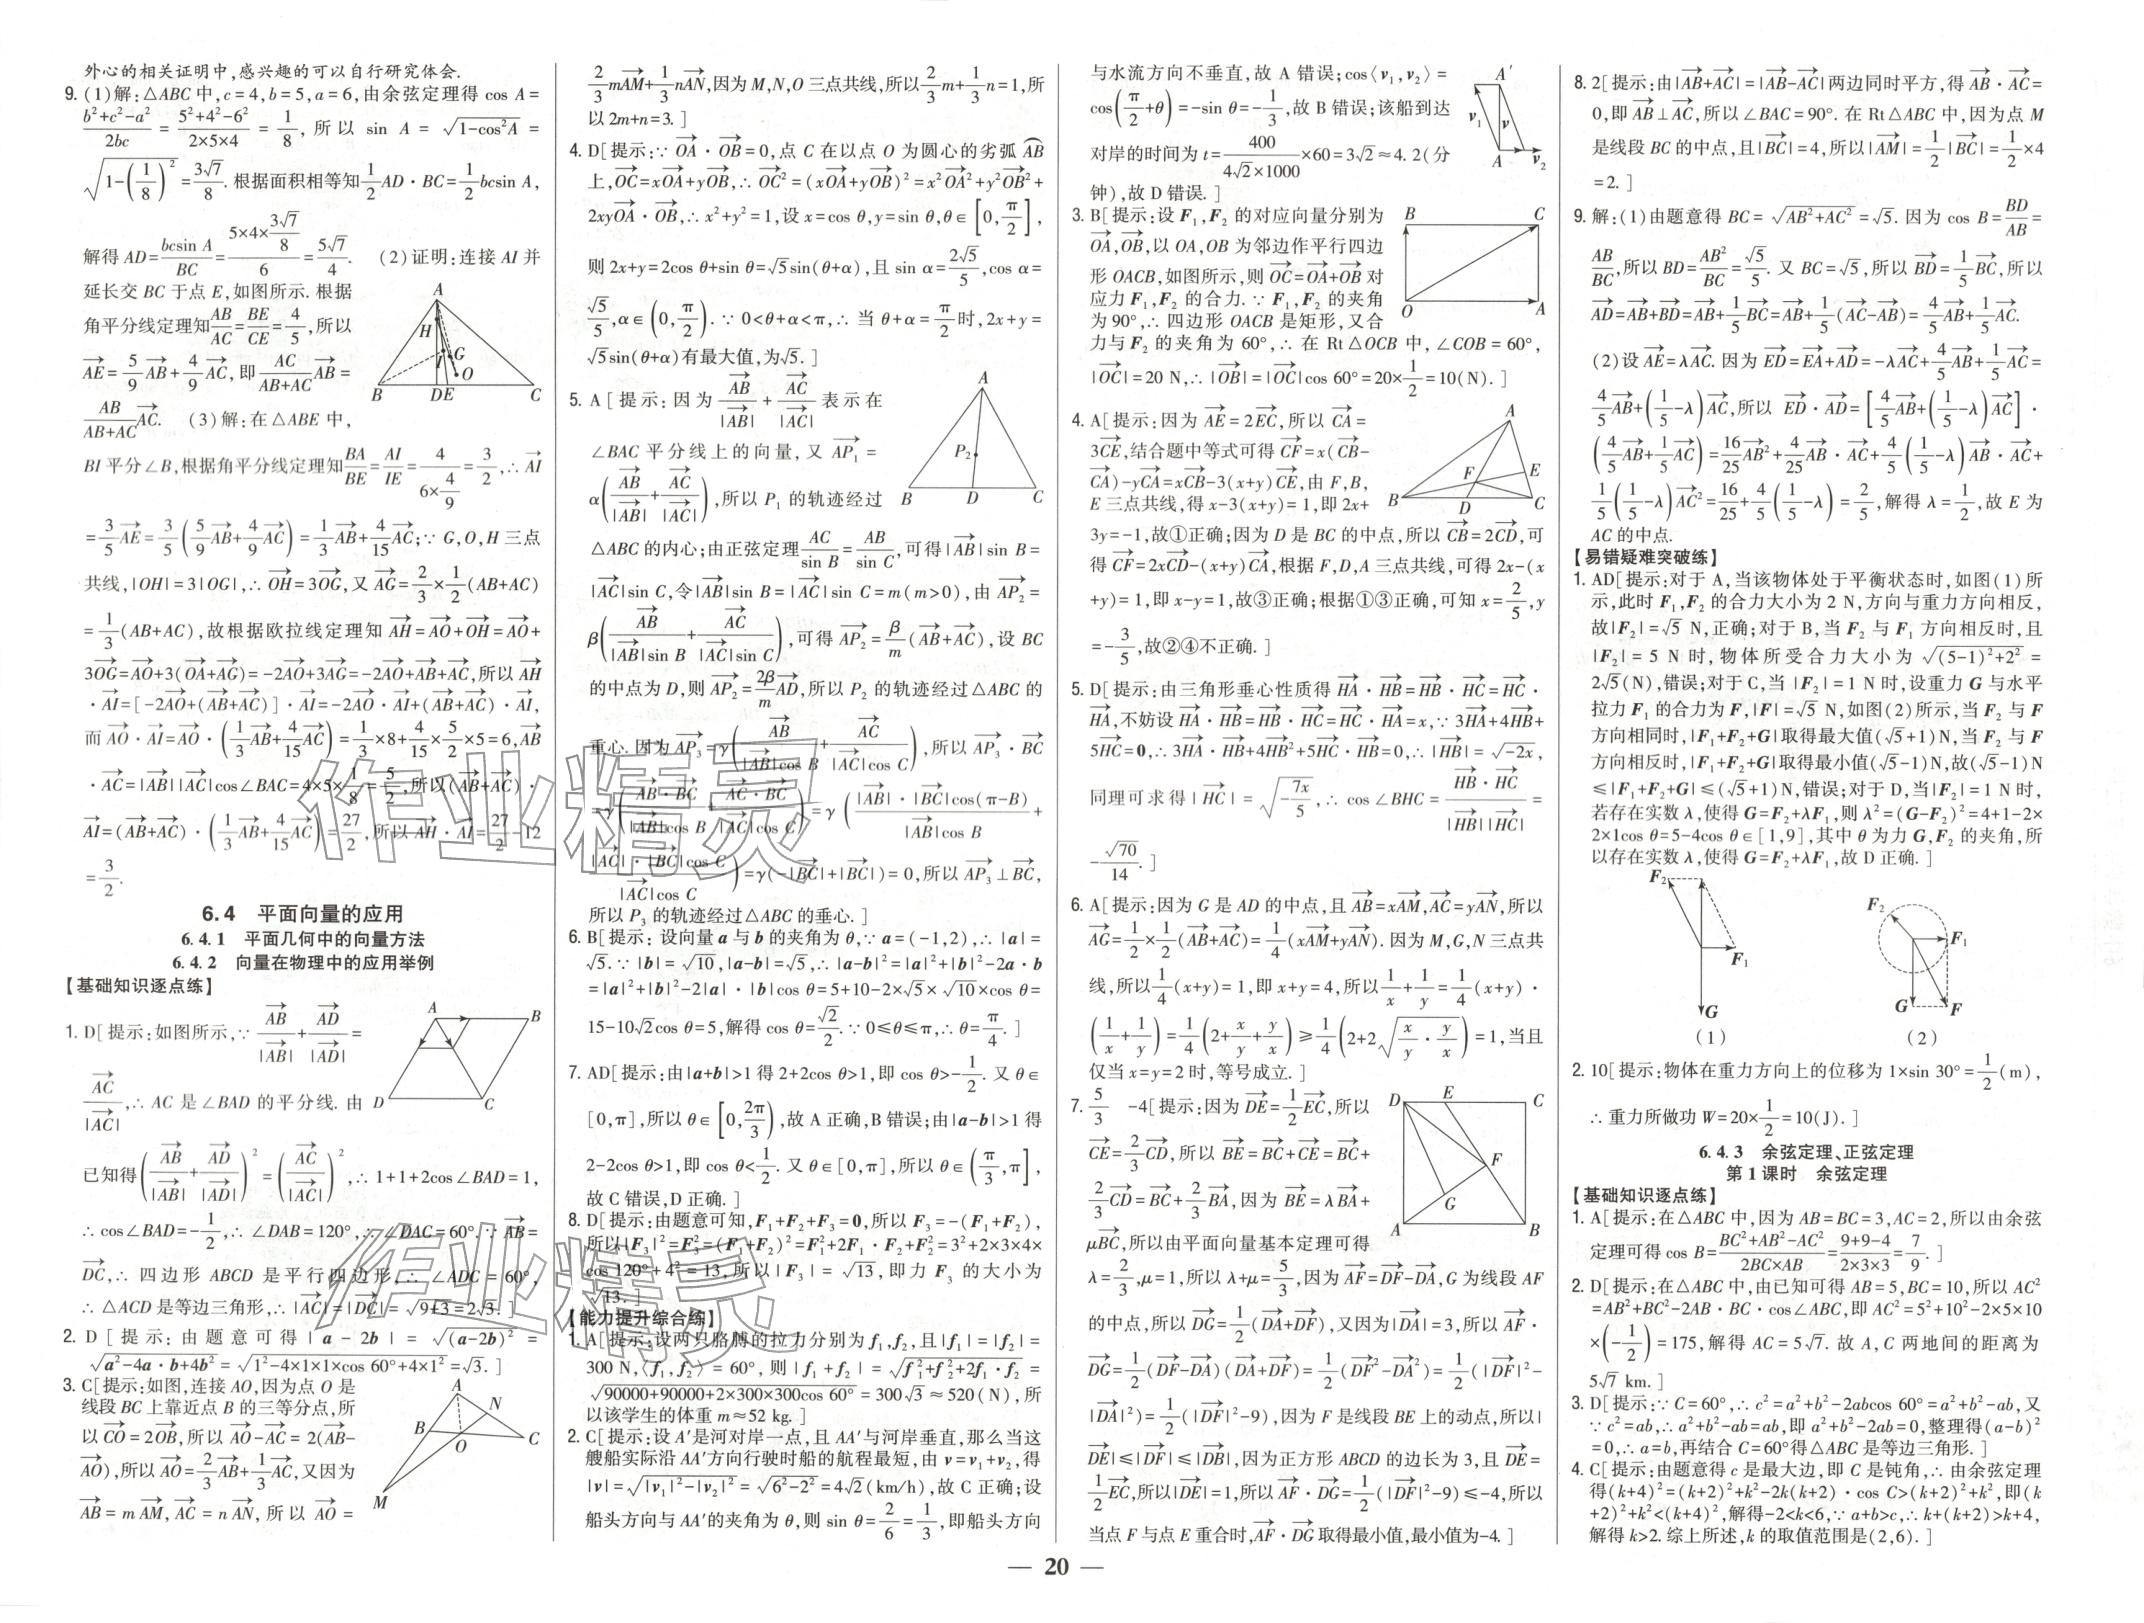 外心的相关证明中,感兴趣的可以自行研究体会.
9. (1)解:△ABC 中,c=4,b=5,a=6,由余弦定理得 cos A=
(b²+c²-a²)/2bc = (5²+4²-6²)/(2×5×4) = 1/8, 所以 sin A = √(1-cos²A) =
√(1-(1/8)²)=3√7/8. 根据面积相等知 1/2 AD·BC=1/2 bcsin A,
解得 AD=bcsin A/BC=(5×4×3√7/8)/6=5√7/4. (2)证明:连接 AI 并
延长交 BC 于点 E,如图所示. 根据
角平分线定理知 AB/AC=BE/CE=4/5,所以
AE→=5/9 AB→+4/9 AC→,即 AC/(AB+AC) AB→ =
AB/(AB+AC) AC→. (3)解:在△ABE 中,
BI 平分∠B,根据角平分线定理知 BA/BE=AI/IE=4/(6×4/9)=3/2,∴ AI→
=3/5 AE→=3/5(5/9 AB→+4/9 AC→)=1/3 AB→+4/15 AC→;∵ G,O,H 三点
共线,|OH|=3|OG|,∴ OH→=3OG→,又 AG→=2/3×1/2(AB+AC)
=1/3(AB+AC),故根据欧拉线定理知 AH→=AO→+OH→=AO→+
3OG→=AO→+3(OA→+AG→)=-2AO→+3AG→=-2AO→+AB→+AC→,所以 AH→
·AI→=[-2AO→+(AB→+AC→)]·AI→=-2AO→·AI→+(AB→+AC→)·AI→,
而 AO→·AI→=AO→·(1/3 AB→+4/15 AC→)=1/3×8+4/15×5/2×5=6,AB→
·AC→=|AB→||AC→|cos∠BAC=4×5×1/8=5/2,所以(AB→+AC→)·
AI→=(AB→+AC→)·(1/3 AB→+4/15 AC→)=27/2,所以 AH→·AI→=27/2-12
=3/2.
6.4 平面向量的应用
6.4.1 平面几何中的向量方法
6.4.2 向量在物理中的应用举例
【基础知识逐点练】
1. D[提示:如图所示,∵ AB→/|AB→|+AD→/|AD→|=
AC→/|AC→|,∴ AC 是∠BAD 的平分线. 由
已知得(AB→/|AB→|+AD→/|AD→|)²=(AC→/|AC→|)²,∴ 1+1+2cos∠BAD=1,
∴ cos∠BAD=-1/2,∴ ∠DAB=120°,∴ ∠DAC=60°. ∵ AB→=
DC→,∴ 四边形 ABCD 是平行四边形,∴ ∠ADC=60°,
∴ △ACD 是等边三角形,∴ |AC→|=|DC→|=√(9+3)=2√3. ]
2. D [提示:由题意可得|a-2b|=√(a-2b)² =
√(a²-4a·b+4b²)=√(1²-4×1×1×cos 60°+4×1²)=√3. ]
3. C[提示:如图,连接 AO,因为点 O 是
线段 BC 上靠近点 B 的三等分点,所
以 CO→=2OB→,所以 AO→-AC→=2(AB→-
AO→),所以 AO→=2/3 AB→+1/3 AC→,又因为
AB→=m AM→,AC→=n AN→,所以 AO→=
2/3 mAM→+1/3 nAN→,因为 M,N,O 三点共线,所以 2/3 m+1/3 n=1,所
以 2m+n=3. ]
4. D[提示:∵ OA→·OB→=0,点 C 在以点 O 为圆心的劣弧 AB
上,OC→=xOA→+yOB→,∴ OC→²=(xOA→+yOB→)²=x²OA→²+y²OB→²+
2xyOA→·OB→,∴ x²+y²=1,设 x=cos θ,y=sin θ,θ∈[0,π/2],
则 2x+y=2cos θ+sin θ=√5 sin(θ+α),且 sin α=2√5/5,cos α=
√5/5,α∈(0,π/2). ∵ 0<θ+α<π,∴ 当 θ+α=π/2 时,2x+y=
√5 sin(θ+α)有最大值,为√5. ]
5. A [提示:因为 AB→/|AB→| + AC→/|AC→| 表示在
∠BAC 平分线上的向量,又 AP₁→=
α(AB→/|AB→|+AC→/|AC→|),所以 P₁ 的轨迹经过
△ABC 的内心;由正弦定理 AC/sin B=AB/sin C,可得|AB→|sin B=
|AC→|sin C,令|AB→|sin B=|AC→|sin C=m(m>0),由 AP₂→=
β(AB→/(|AB→|sin B)+AC→/(|AC→|sin C)),可得 AP₂→=β/m(AB→+AC→),设 BC
的中点为 D,则 AP₂→=2β/m AD→,所以 P₂ 的轨迹经过△ABC 的
重心. 因为 AP₃→=γ(AB→/(|AB→|cos B)+AC→/(|AC→|cos C)),所以 AP₃→·BC→
=γ(AB→·BC→/(|AB→|cos B)+AC→·BC→/(|AC→|cos C))=γ(|AB→|·|BC→|cos(π-B)/(|AB→|cos B)+
|AC→|·|BC→|cos C/(|AC→|cos C))=γ(-|BC→|+|BC→|)=0,所以 AP₃→⊥BC→,
所以 P₃ 的轨迹经过△ABC 的垂心. ]
6. B[提示: 设向量 a 与 b 的夹角为 θ,∵ a=(-1,2),∴ |a|=
√5. ∵ |b|=√10,|a-b|=√5,∴ |a-b|²=|a|²+|b|²-2a·b
=|a|²+|b|²-2|a|·|b|cos θ=5+10-2×√5×√10×cos θ=
15-10√2cos θ=5,解得 cos θ=√2/2. ∵ 0≤θ≤π,∴ θ=π/4. ]
7. AD[提示:由|a+b|>1 得 2+2cos θ>1,即 cos θ>-1/2. 又 θ∈
[0,π],所以 θ∈[0,2π/3),故 A 正确,B 错误;由|a-b|>1 得
2-2cos θ>1,即 cos θ<1/2. 又 θ∈[0,π],所以 θ∈(π/3,π],
故 C 错误,D 正确. ]
8. D[提示:由题意可知,F₁+F₂+F₃=0,所以 F₃=-(F₁+F₂),
所以|F₃|²=F₃²=(F₁+F₂)²=F₁²+2F₁·F₂+F₂²=3²+2×3×4×
cos 120°+4²=13,所以|F₃|=√13,即力 F₃ 的大小为
√13. ]
【能力提升综合练】
1. A[提示:设两只胳膊的拉力分别为 f₁,f₂,且|f₁|=|f₂|=
300 N,⟨f₁,f₂⟩=60°,则|f₁+f₂|=√(f₁²+f₂²+2f₁·f₂)=
√(90000+90000+2×300×300cos 60°)=300√3≈520(N),所
以该学生的体重 m≈52 kg. ]
2. C[提示:设 A′是河对岸一点,且 AA′与河岸垂直,那么当这
艘船实际沿 AA′方向行驶时船的航程最短,由 v=v₁+v₂,得
|v|=√(|v₁|²-|v₂|²)=√(6²-2²)=4√2(km/h),故 C 正确;设
船头方向与 AA′的夹角为 θ,则 sin θ=2/6=1/3,即船头方向
与水流方向不垂直,故 A 错误;cos⟨v₁,v₂⟩=
cos(π/2+θ)=-sin θ=-1/3,故 B 错误;该船到达
对岸的时间为 t=400/(4√2×1000)×60=3√2≈4.2(分
钟),故 D 错误. ]
3. B[提示:设 F₁,F₂ 的对应向量分别为
OA→,OB→,以 OA,OB 为邻边作平行四边
形 OACB,如图所示,则 OC→=OA→+OB→ 对
应力 F₁,F₂ 的合力. ∵ F₁,F₂ 的夹角
为 90°,∴ 四边形 OACB 是矩形,又合
力与 F₂ 的夹角为 60°,∴ 在 Rt△OCB 中,∠COB=60°,
|OC→|=20 N,∴ |OB→|=|OC→|cos 60°=20×1/2=10(N). ]
4. A[提示:因为 AE→=2EC→,所以 CA→=
3CE→,结合题中等式可得 CF→=x(CB→-
CA→)-yCA→=xCB→-3(x+y)CE→,由 F,B,
E 三点共线,得 x-3(x+y)=1,即 2x+
3y=-1,故①正确;因为 D 是 BC 的中点,所以 CB→=2CD→,可
得 CF→=2xCD→-(x+y)CA→,根据 F,D,A 三点共线,可得 2x-(x
+y)=1,即 x-y=1,故③正确;根据①③正确,可知 x=2/5,y
=-3/5,故②④不正确. ]
5. D[提示:由三角形垂心性质得 HA→·HB→=HB→·HC→=HC→·
HA→,不妨设 HA→·HB→=HB→·HC→=HC→·HA→=x,∵ 3HA→+4HB→+
5HC→=0,∴ 3HA→·HB→+4HB→²+5HC→·HB→=0,∴ |HB→|=√(-2x),
同理可求得|HC→|=√(-7x/5),∴ cos∠BHC=HB→·HC→/(|HB→||HC→|)=
-√70/14. ]
6. A[提示:因为 G 是 AD 的中点,且 AB→=xAM→,AC→=yAN→,所以
AG→=1/2×1/2(AB→+AC→)=1/4(xAM→+yAN→). 因为 M,G,N 三点共
线,所以 1/4(x+y)=1,即 x+y=4,所以 1/x+1/y=1/4(x+y)·
(1/x+1/y)=1/4(2+x/y+y/x)≥1/4(2+2√(x/y·y/x))=1,当且
仅当 x=y=2 时,等号成立. ]
7. 5/3 -4[提示:因为 DE→=1/2 EC→,所以
CE→=2/3 CD→,所以 BE→=BC→+CE→=BC→+
2/3 CD→=BC→+2/3 BA→,因为 BE→=λBA→+
μBC→,所以由平面向量基本定理可得
λ=2/3,μ=1,所以 λ+μ=5/3,因为 AF→=DF→-DA→,G 为线段 AF
的中点,所以 DG→=1/2(DA→+DF→),又因为|DA→|=3,所以 AF→·
DG→=1/2(DF→-DA→)(DA→+DF→)=1/2(DF→²-DA→²)=1/2(|DF→|²-
|DA→|²)=1/2(|DF→|²-9),因为 F 是线段 BE 上的动点,所以|
DE→|≤|DF→|≤|DB→|,因为正方形 ABCD 的边长为 3,且 DE→=
1/2 EC→,所以|DE→|=1,所以 AF→·DG→=1/2(|DF→|²-9)≤-4,所以
当点 F 与点 E 重合时,AF→·DG→取得最小值,最小值为-4. ]
8. 2[提示:由|AB→+AC→|=|AB→-AC→|两边同时平方,得 AB→·AC→=
0,即 AB→⊥AC→,所以∠BAC=90°. 在 Rt△ABC 中,因为点 M
是线段 BC 的中点,且|BC→|=4,所以|AM→|=1/2|BC→|=1/2×4
=2. ]
9. 解:(1)由题意得 BC=√(AB²+AC²)=√5. 因为 cos B=BD/AB=
AB/BC,所以 BD=AB²/BC=√5/5. 又 BC=√5,所以 BD→=1/5 BC→,所以
AD→=AB→+BD→=AB→+1/5 BC→=AB→+1/5(AC→-AB→)=4/5 AB→+1/5 AC→.
(2)设 AE→=λAC→. 因为 ED→=EA→+AD→=-λAC→+4/5 AB→+1/5 AC→=
4/5 AB→+(1/5-λ)AC→,所以 ED→·AD→=[4/5 AB→+(1/5-λ)AC→]·
(4/5 AB→+1/5 AC→)=16/25 AB→²+4/25 AB→·AC→+4/5(1/5-λ)AB→·AC→+
1/5(1/5-λ)AC→²=16/25+4/5(1/5-λ)=2/5,解得 λ=1/2,故 E 为
AC 的中点.
【易错疑难突破练】
1. AD[提示:对于 A,当该物体处于平衡状态时,如图(1)所
示,此时 F₁,F₂ 的合力大小为 2 N,方向与重力方向相反,
故|F₂|=√5 N,正确;对于 B,当 F₂ 与 F₁ 方向相反时,且
|F₂|=5 N 时,物体所受合力大小为 √((5-1)²+2²)=
2√5(N),错误;对于 C,当|F₂|=1 N 时,设重力 G 与水平
拉力 F₁ 的合力为 F,|F|=√5 N,如图(2)所示,当 F₂ 与 F
方向相同时,|F₁+F₂+G|取得最大值(√5+1)N,当 F₂ 与 F
方向相反时,|F₁+F₂+G|取得最小值(√5-1)N,故(√5-1)N
≤|F₁+F₂+G|≤(√5+1)N,错误;对于 D,当|F₂|=1 N 时,
若存在实数 λ,使得 G=F₂+λF₁,则 λ²=(G-F₂)²=4+1-2×
2×1cos θ=5-4cos θ∈[1,9],其中 θ 为力 G,F₂ 的夹角,所
以存在实数 λ,使得 G=F₂+λF₁,故 D 正确. ]
(1) (2)
2. 10[提示:物体在重力方向上的位移为 1×sin 30°=1/2(m),
∴ 重力所做功 W=20×1/2=10(J). ]
6.4.3 余弦定理、正弦定理
第 1 课时 余弦定理
【基础知识逐点练】
1. A[提示:在△ABC 中,因为 AB=BC=3,AC=2,所以由余弦
定理可得 cos B=(BC²+AB²-AC²)/(2BC×AB)=(9+9-4)/(2×3×3)=7/9. ]
2. D[提示:在△ABC 中,由已知可得 AB=5,BC=10,所以 AC²
=AB²+BC²-2AB·BC·cos∠ABC,即 AC²=5²+10²-2×5×10
×(-1/2)=175,解得 AC=5√7. 故 A,C 两地间的距离为
5√7 km. ]
3. D[提示:∵ C=60°,∴ c²=a²+b²-2abcos 60°=a²+b²-ab,又
∵ c²=ab,∴ a²+b²-ab=ab,即 a²+b²-2ab=0,整理得(a-b)²
=0,∴ a=b,再结合 C=60°得△ABC 是等边三角形. ]
4. C[提示:由题意得 c 是最大边,即 C 是钝角,∴ 由余弦定理
得(k+4)²=(k+2)²+k²-2k(k+2)·cos C>(k+2)²+k²,即(k
+2)²+k²<(k+4)²,解得-2<k<6,∵ a+b>c,∴ k+(k+2)>k+4,
解得 k>2. 综上所述,k 的取值范围是(2,6). ]
— 20 —
作业精灵
作业精灵